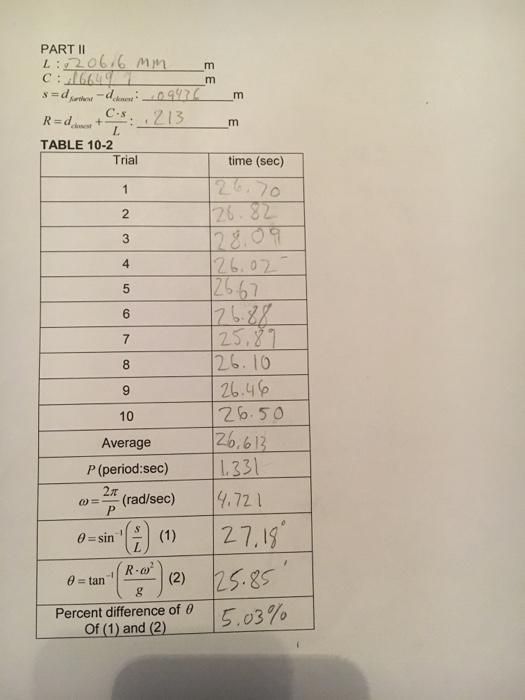 PART II
L : .2066 mm m
C : .16649 m
s = d furthest - d closest : .09436 m
R = d closest + C·s/L : .213 m
TABLE 10-2
Trial time (sec)
1 26.70
2 26.82
3 28.09
4 26.02
5 26.67
6 26.88
7 25.89
8 26.10
9 26.46
10 26.50
Average 26.613
P (period:sec) 1.331
ω = 2π/P (rad/sec) 4.721
θ = sin⁻¹(s/L) (1) 27.18°
θ = tan⁻¹(R·ω²/g) (2) 25.85°
Percent difference of θ
Of (1) and (2) 5.03%